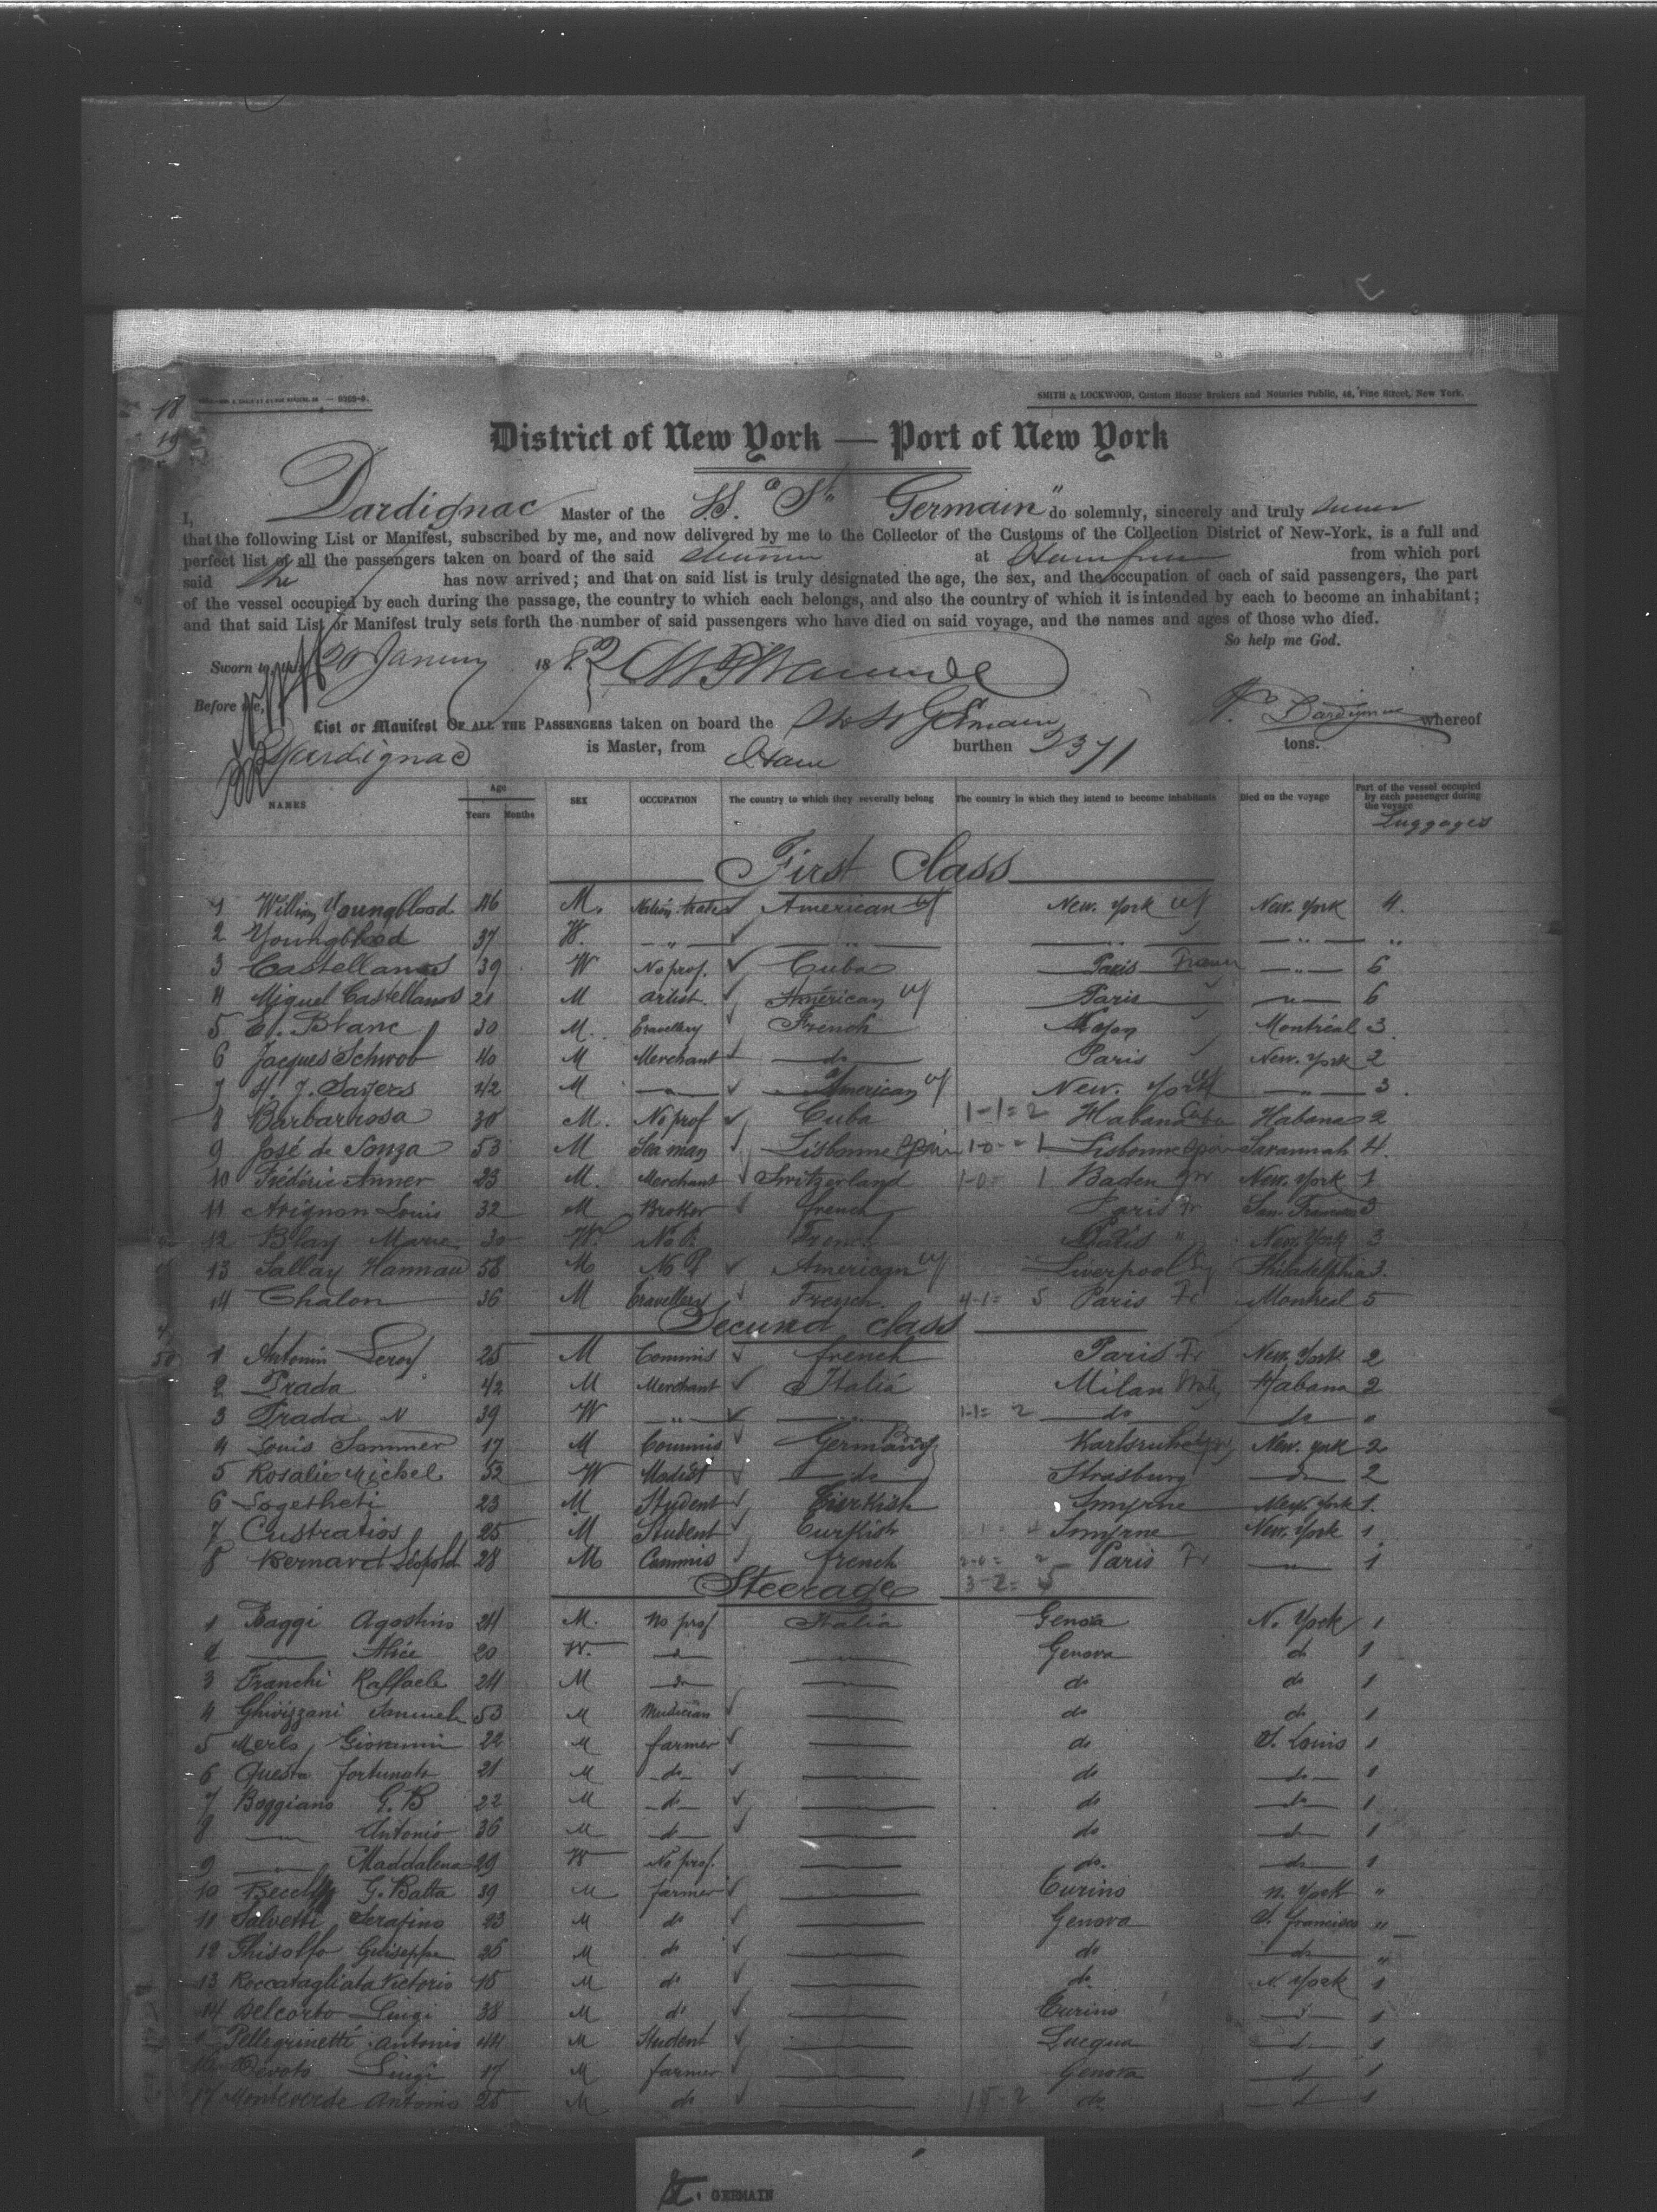 18
19
SMITH & LOCKWOOD, Custom House Brokers and Notaries Public, 48, Pine Street, New York.
District of New York — Port of New York
I, Dardignac Master of the S.S. "St Germain" do solemnly, sincerely and truly swear
that the following List or Manifest, subscribed by me, and now delivered by me to the Collector of the Customs of the Collection District of New-York, is a full and
perfect list of all the passengers taken on board of the said at from which port
said Ship has now arrived; and that on said list is truly designated the age, the sex, and the occupation of each of said passengers, the part
of the vessel occupied by each during the passage, the country to which each belongs, and also the country of which it is intended by each to become an inhabitant;
and that said List or Manifest truly sets forth the number of said passengers who have died on said voyage, and the names and ages of those who died.
So help me God.
Sworn to 20 January 1882
Before me,
List or Manifest OF ALL THE PASSENGERS taken on board the St Germain whereof
Dardignac is Master, from Havre burthen 2371 tons.
NAMES Age Years Months SEX OCCUPATION The country to which they severally belong The country in which they intend to become inhabitants Died on the voyage Part of the vessel occupied by each passenger during the voyage
Luggages
First Class
1 William Youngblood 46 M. American New. York New. York 4.
2 Youngblood 37 W. — " — — " — — " — — " — "
3 Castellanos 39 W No prof. Cuba Paris — " — 6
4 Miguel Castellanos 21 M artist. American Paris — " — 6
5 E. Blanc 30 M. Travellery French Montréal 3
6 Jacques Schwob 40 M Merchant do Paris New. York 2
7 H. J. Sayers 42 M — " — American New. York — " — 3.
8 Barbarrosa 30 M. No prof Cuba 1-1=2 Habana Cuba Habana 2
9 José de Souza 53 M Sea man Lisbonne Spain 1-0-=1 Lisbonne Spain Savannah 4.
10 Frédéric Anner 23 M. Merchant Switzerland 1-0= 1 Baden New. York 1
11 Avignon Louis 32 M Broker french Paris Fr San Francisco 3
12 Blay Marie 30 W. No P. French Paris " New. York 3
13 Sallay Hannau 56 M No P American Liverpool Philadelphia 3.
14 Chalon 36 M Travellery French. 4-1= 5 Paris Fr Montreal 5
Second class
1 Antonin Leroy 25 M Commis french Paris Fr New. York 2
2 Prada 42 M Merchant Italia Milan Italy Habana 2
3 Prada N 39 W — " — — " — 1-1= 2 do do "
4 Louis Sommer 17 M Commis Germany Karlsruhe New. York 2
5 Rosalie Michel 52 W Modist do Strasburg do 2
6 Sogetheti 23 M Student Turkish Smyrne New. York 1.
7 Custratios 25 M Student Turkish Smyrne New. York 1
8 Bernard Léopold 28 M Commis french 2-0= 2 Paris Fr — " — 1
3-2= 5
Steerage
1 Baggi Agostino 24 M. No prof Italia Genova N. York 1
2 — Alice 20 W. do — Genova do 1
3 Franchi Raffaele 24 M do — do do 1
4 Ghivizzani Samuele 53 M Musician — do do 1
5 Merlo Giovanni 22 M farmer — do S. Louis 1
6 Questa fortunato 21 M do — do do 1
7 Boggiano G. B 22 M do — do do 1
8 — Antonio 36 M do — do do 1
9 — Maddalena 29 W No prof. — do. do 1
10 G. Batta 39 M farmer — Turino N. York "
11 Salvetti Serafino 23 M do — Genova S. Francisco "
12 Ghisolfo Guiseppe 26 M do — do do "
13 Roccatagliata Victorio 15 M do — do. N. York 1
14 Delcorto Luigi 38 M do — Turino do 1
1 Pellegrinetti Antonio 44 M Student — Lucqua do 1
16 Devoto Luigi 17 M farmer — Genova do 1
17 Monteverde Antonio 25 M do — 15-2 do. do 1
St. GERMAIN